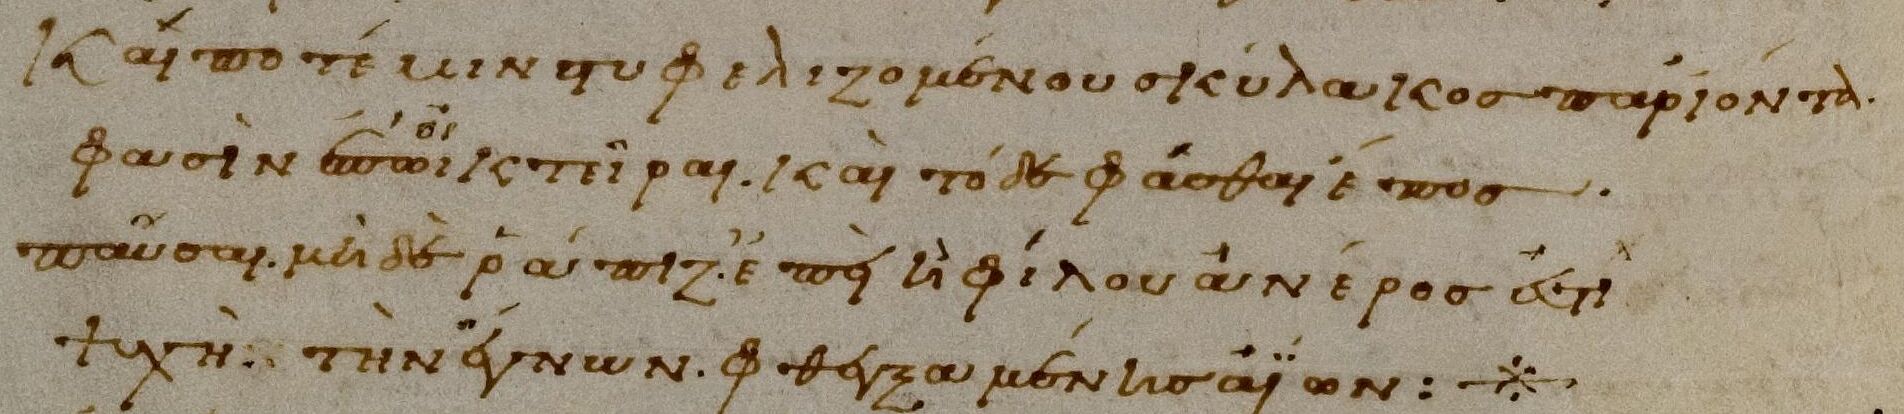 Καί ποτέ μιν στυφελιζομένου σκύλακος παριόντα.
φασὶν ἐποικτεῖραι. καὶ τόδε φάσθαι ἔπος.
παῦσαι. μηδὲ ῥάπιζ. ἐπὴ ἢ φίλου ἀνέρος ἐστὶ
ψυχὴ. τὴν ἔγνων. φθεγξαμένης ἀΐων: